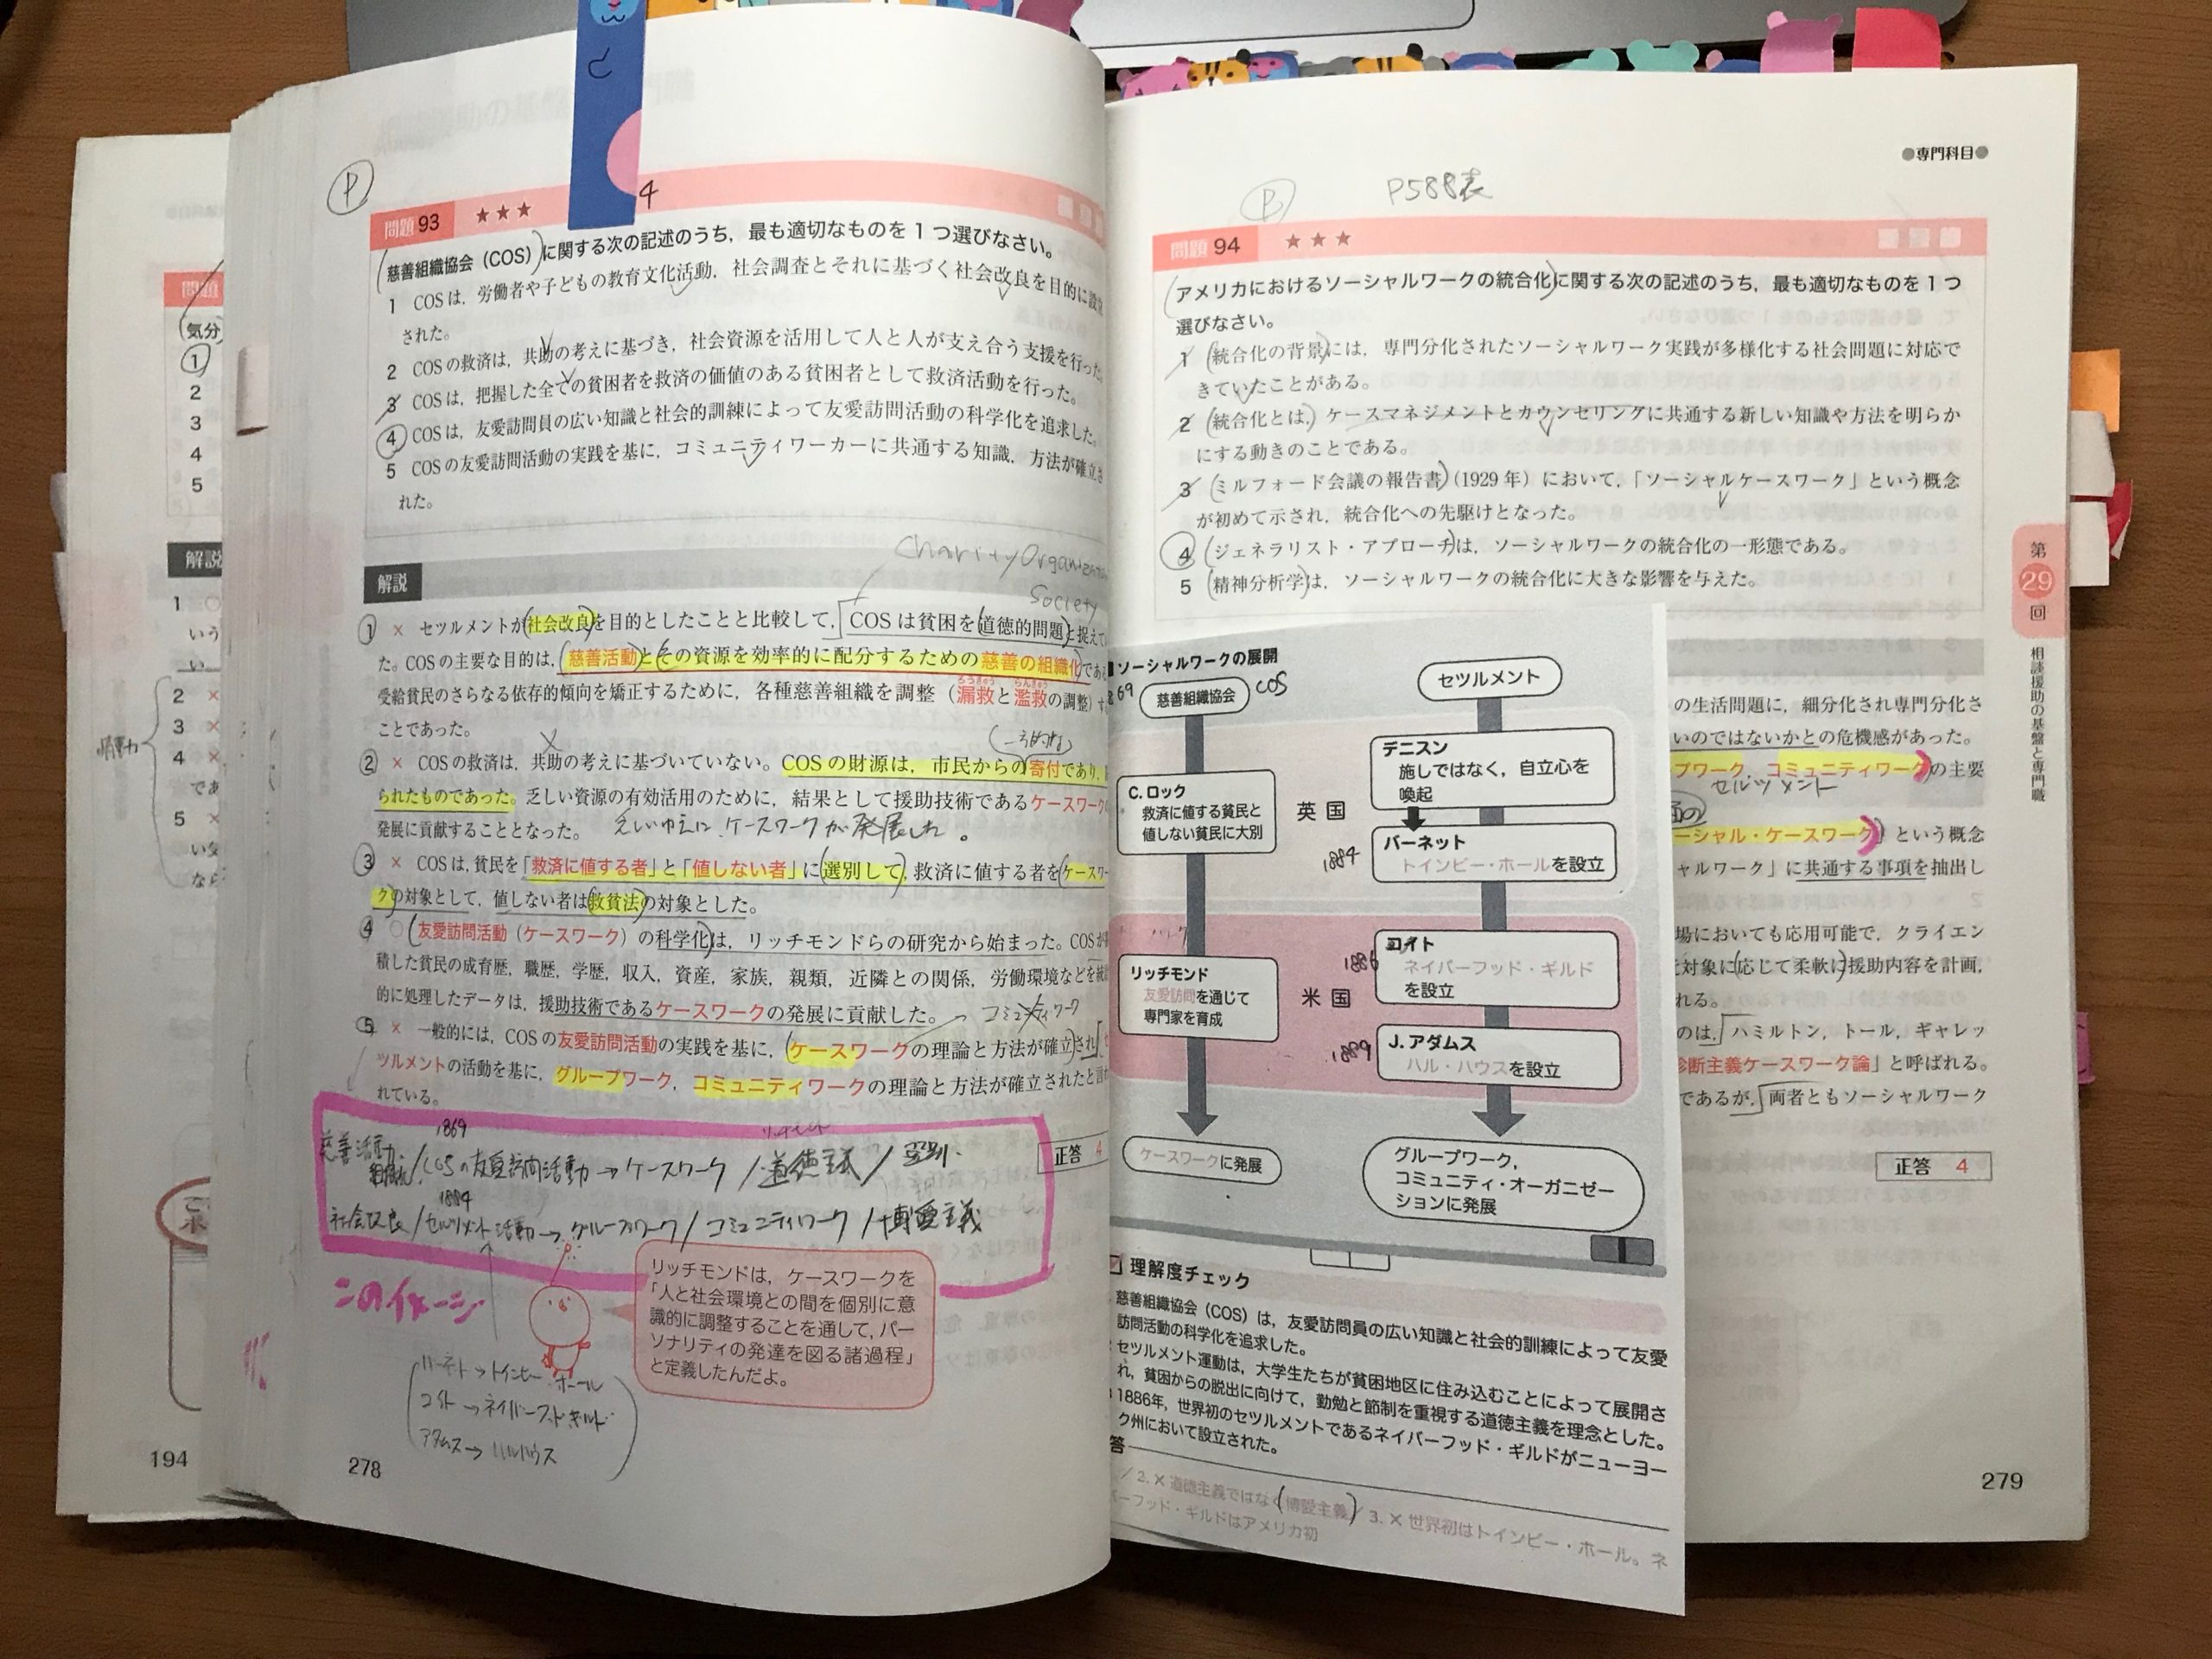 P
4
問題 93 ★★★
慈善組織協会（COS）に関する次の記述のうち，最も適切なものを1つ選びなさい。
1 COSは，労働者や子どもの教育文化活動，社会調査とそれに基づく社会改良を目的に設
された。
2 COSの救済は，共助の考えに基づき，社会資源を活用して人と人が支え合う支援を行った。
3 COSは，把握した全ての貧困者を救済の価値のある貧困者として救済活動を行った。
4 COSは，友愛訪問員の広い知識と社会的訓練によって友愛訪問活動の科学化を追求した。
5 COSの友愛訪問活動の実践を基に，コミュニティワーカーに共通する知識，方法が確立さ
れた。
Charity Organization
Society
解説
1 × セツルメントが社会改良を目的としたことと比較して，COSは貧困を道徳的問題と捉えて
た。COSの主要な目的は，慈善活動とその資源を効率的に配分するための慈善の組織化であ
受給貧民のさらなる依存的傾向を矯正するために，各種慈善組織を調整（漏救と濫救の調整）す
ことであった。
2 × COSの救済は，共助の考えに基づいていない。COSの財源は，市民からの寄付であり，
られたものであった。乏しい資源の有効活用のために，結果として援助技術であるケースワーク
発展に貢献することとなった。
ケースワークが発展した。
3 × COSは，貧民を「救済に値する者」と「値しない者」に選別して，救済に値する者をケースワー
クの対象として，値しない者は救貧法の対象とした。
4 ○ 友愛訪問活動（ケースワーク）の科学化は，リッチモンドらの研究から始まった。COSが
積した貧民の成育歴，職歴，学歴，収入，資産，家族，親類，近隣との関係，労働環境などを統
的に処理したデータは，援助技術であるケースワークの発展に貢献した。
5 × 一般的には，COSの友愛訪問活動の実践を基に，ケースワークの理論と方法が確立され
ツルメントの活動を基に，グループワーク，コミュニティワークの理論と方法が確立されたと言
れている。
正答 4
1869
慈善活動 組織化/COSの友愛訪問活動→ケースワーク/道徳主義/選別
1884
社会改良/セツルメント活動→グループワーク/コミュニティワーク/博愛主義
このイメージ
リッチモンドは，ケースワークを
「人と社会環境との間を個別に意
識的に調整することを通して，パー
ソナリティの発達を図る諸過程」
と定義したんだよ。
バーネット→トインビーホール
コイト→ネイバーフッドギルド
アダムス→ハルハウス
278
194
問題
気分
1
2
3
4
5
解説
1
いう
い
2 ×
3 ×
4 ×
であ
5 ×
い気
なら
●専門科目●
P588表
問題 94 ★★★
アメリカにおけるソーシャルワークの統合化に関する次の記述のうち，最も適切なものを1つ
選びなさい。
1 統合化の背景には，専門分化されたソーシャルワーク実践が多様化する社会問題に対応で
きていたことがある。
2 統合化とは，ケースマネジメントとカウンセリングに共通する新しい知識や方法を明らか
にする動きのことである。
3 ミルフォード会議の報告書（1929年）において，「ソーシャルケースワーク」という概念
が初めて示され，統合化への先駆けとなった。
4 ジェネラリスト・アプローチは，ソーシャルワークの統合化の一形態である。
5 精神分析学は，ソーシャルワークの統合化に大きな影響を与えた。
第29回 相談援助の基盤と専門職
■ソーシャルワークの展開
69 慈善組織協会 COS
セツルメント
C.ロック
救済に値する貧民と
値しない貧民に大別
英国
デニスン
施しではなく，自立心を
喚起
1884
バーネット
トインビー・ホールを設立
リッチモンド
友愛訪問を通じて
専門家を育成
米国
1886
コイト
ネイバーフッド・ギルド
を設立
1889
J.アダムス
ハル・ハウスを設立
ケースワークに発展
グループワーク，
コミュニティ・オーガニゼー
ションに発展
理解度チェック
慈善組織協会（COS）は，友愛訪問員の広い知識と社会的訓練によって友愛
訪問活動の科学化を追求した。
セツルメント運動は，大学生たちが貧困地区に住み込むことによって展開さ
れ，貧困からの脱出に向けて，勤勉と節制を重視する道徳主義を理念とした。
1886年，世界初のセツルメントであるネイバーフッド・ギルドがニューヨー
ク州において設立された。
答
/ 2. × 道徳主義ではなく博愛主義/ 3. × 世界初はトインビー・ホール。ネ
バーフッド・ギルドはアメリカ初
の生活問題に，細分化され専門分化さ
いのではないかとの危機感があった。
プワーク，コミュニティワークの主要
セルツメント
ーシャル・ケースワーク」という概念
ャルワーク」に共通する事項を抽出し
場においても応用可能で，クライエン
対象に応じて柔軟に援助内容を計画，
れる。
のは，ハミルトン，トール，ギャレッ
診断主義ケースワーク論」と呼ばれる。
であるが，両者ともソーシャルワーク
正答 4
279